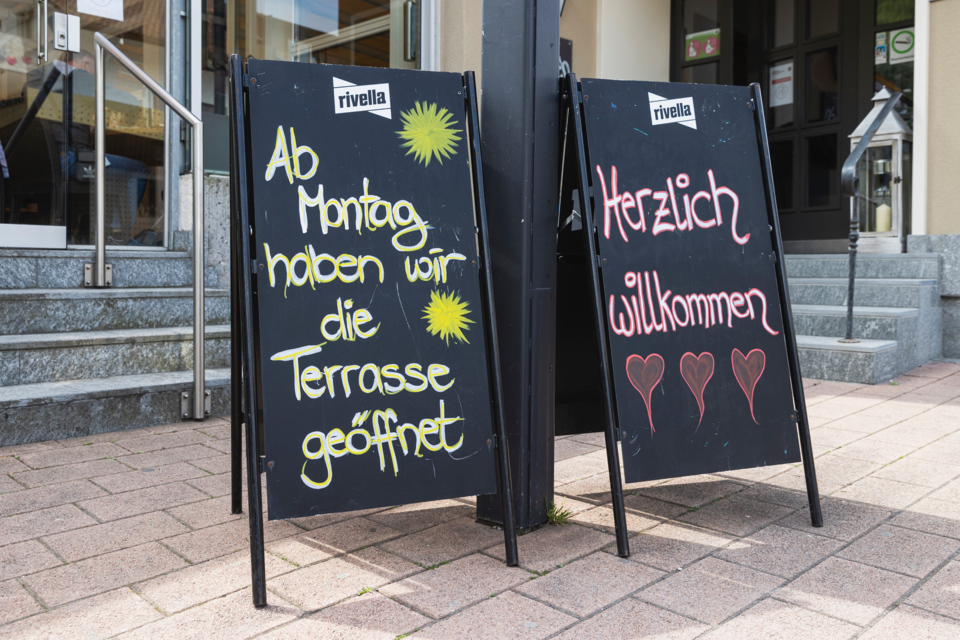 rivella
Ab
Montag
haben wir
die
Terrasse
geöffnet
rivella
Herzlich
willkommen